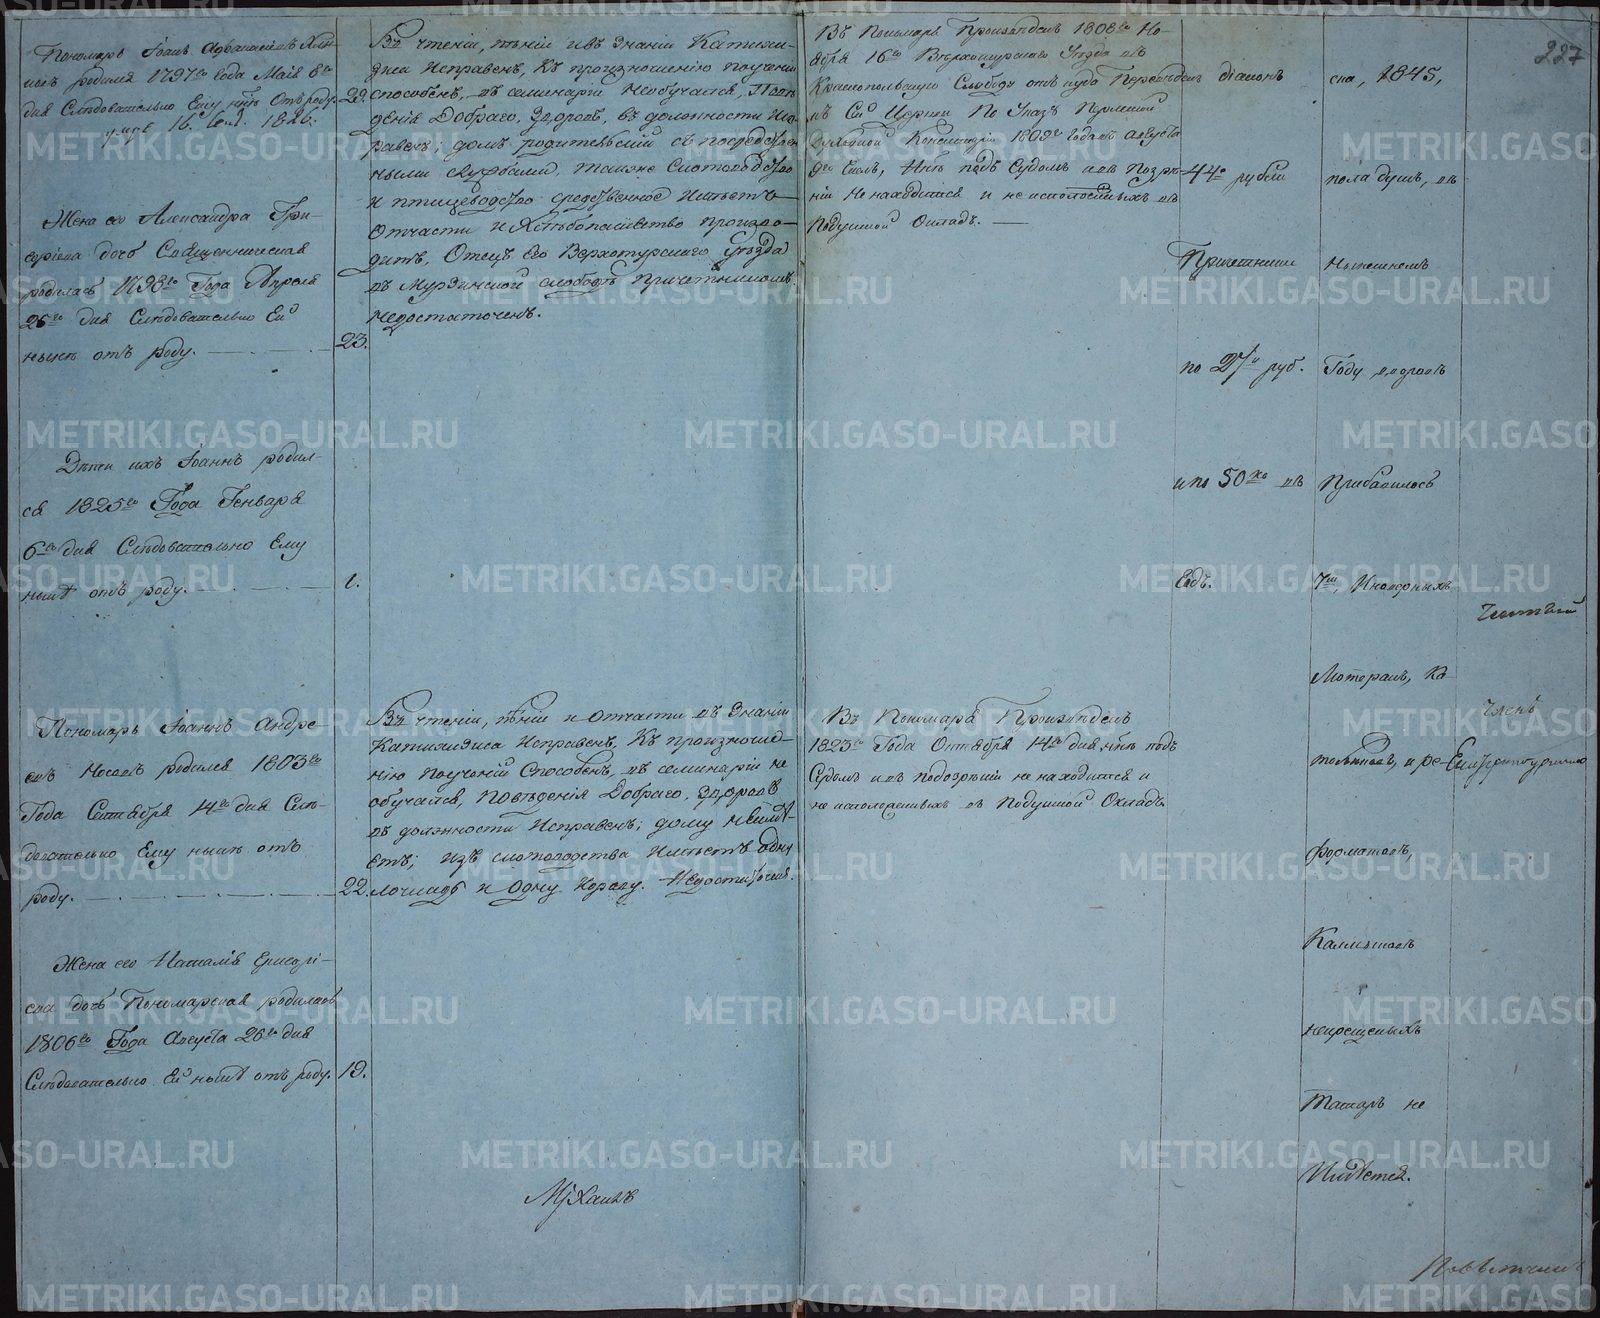 227
Пономарь Іоаннъ
родился 1797го Года Маія 8го
дня Слѣдовательно Ему нынѣ отъ роду.
29.
умре 16. 1826.
Жена его Александра Гри-
горіева дочь Священническая
родилась 1798го Года Апреля
26го дня Слѣдовательно Ей
нынѣ отъ роду.
23.
Дѣти ихъ Іоаннъ родил-
ся 1825го Года Генваря
6го дня Слѣдовательно Ему
нынѣ отъ роду.
1.
Пономарь Іоаннъ Андре-
евъ Носовъ родился 1803го
Года Сентября 14го дня Слѣ-
довательно Ему нынѣ отъ
роду.
22.
Жена его Наталія Григорі-
ева дочь Пономарская родилась
1806го Года Августа 26го дня
Слѣдовательно Ей нынѣ отъ роду.
19.
Въ чтеніи, пѣніи и въ знаніи Катихи-
зиса Исправенъ, Къ произношенію поученій
способенъ, въ семинаріи необучался, Пове-
денія Добраго, Здоровъ, въ должности Ис-
правенъ; домъ родительскій съ посредствен-
ными службами, также Скотоводство
и птицеводство средственное Имѣетъ
отчасти и Хлѣбопашество произво-
дитъ, Отецъ его Верхотурскаго Уѣзда
въ Мурзинской слободѣ Причетникомъ
недостаточенъ.
Въ чтеніи, пѣніи и отчасти въ знаніи
Катихизиса Исправенъ, Къ произноше-
нію поученій Способенъ, въ семинаріи не
обучался, Поведенія Добраго, Здоровъ
въ должности Исправенъ; дому неимѣ-
етъ; изъ скотоводства Имѣетъ одну
лошадь и одну Корову. Недостаточенъ.
Михаилъ
Въ Пономаря Произведенъ 1808го Но-
ября 16го Верхотурскаго Уѣзда въ
Краснопольскую Слободу отъ куда Переведенъ
къ Сей Церкви По Указу Пермской
Духовной Консисторіи 1809го Года въ Августѣ
подъ Судомъ и въ Подозрѣ-
ніи Не находился и не исполосныхъ въ
Подушной Окладъ.
Въ Пономаря Произведенъ
1823го Года Октября 14го дня нынѣ подъ
Судомъ и въ подозрѣніи не находился и
въ Подушной Окладъ
діаконъ
44ре рубли
Причетники
по 27и руб.
и по 50ко въ
Годъ.
ска, 1845,
пола душъ, въ
Нынешнемъ
Году вдрагъ
Прибавилось
7ш, Иноверныхъ
Лютеранъ, Ка
толиковъ, и ре-
форматовъ,
Калмыковъ
некрещеныхъ
Татаръ не
Имѣется.
членъ
METRIKI.GASO-URAL.RU